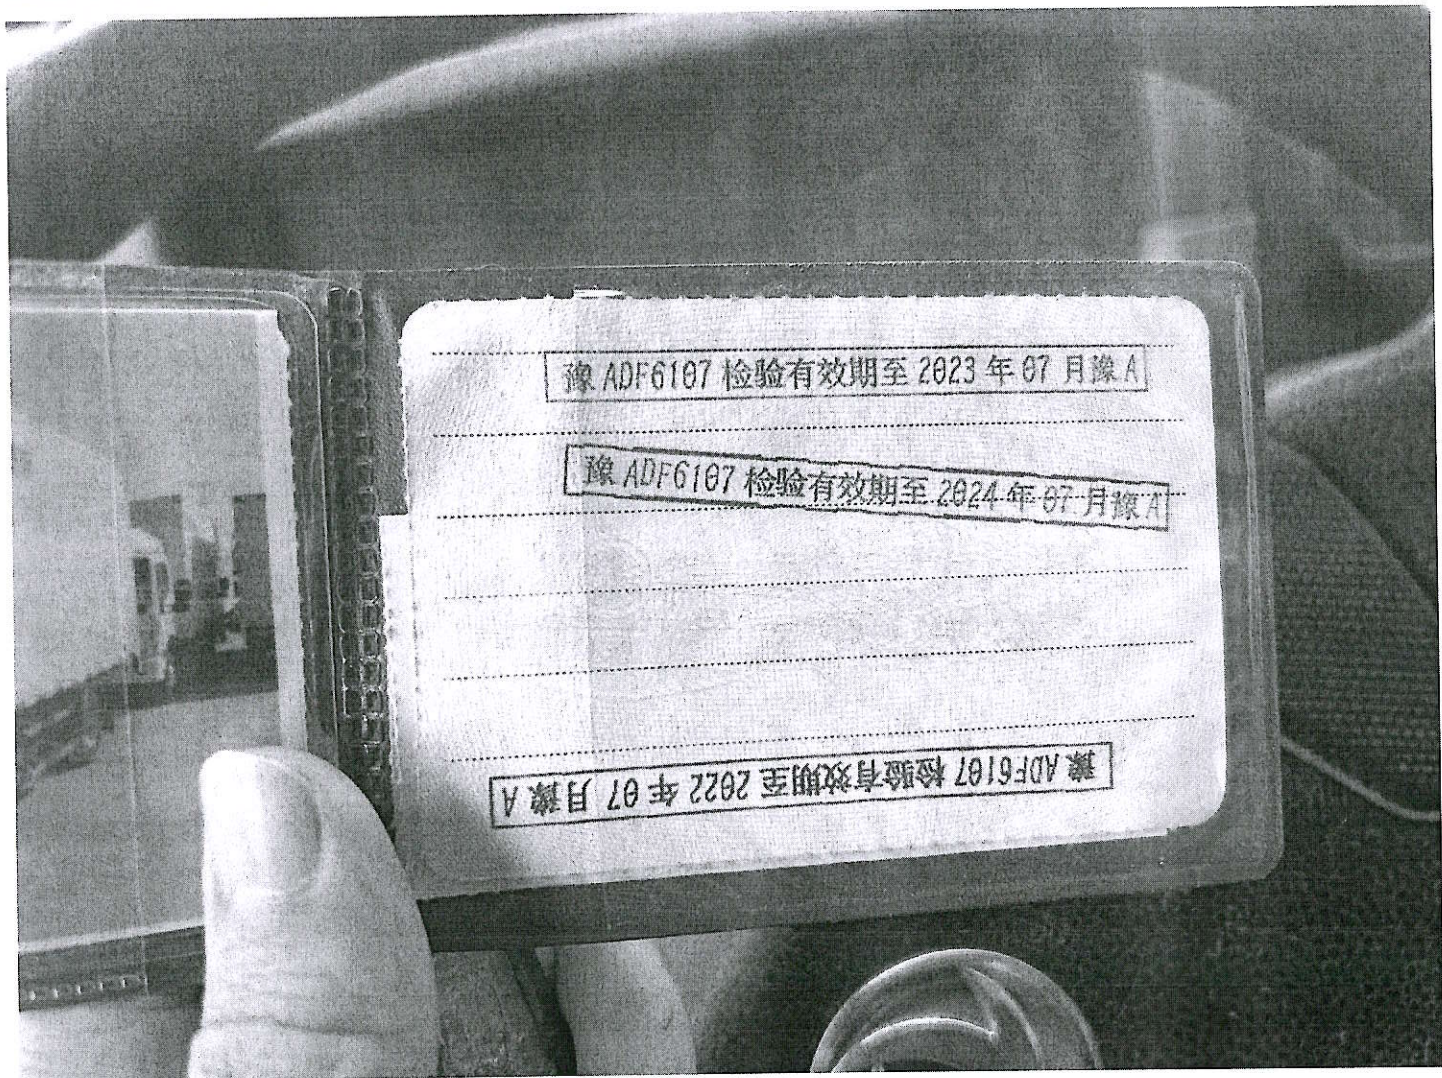 豫 ADF6107 检验有效期至 2023 年 07 月豫 A
豫 ADF6107 检验有效期至 2024 年 07 月豫 A
豫 ADF6107 检验有效期至 2022 年 07 月豫 A